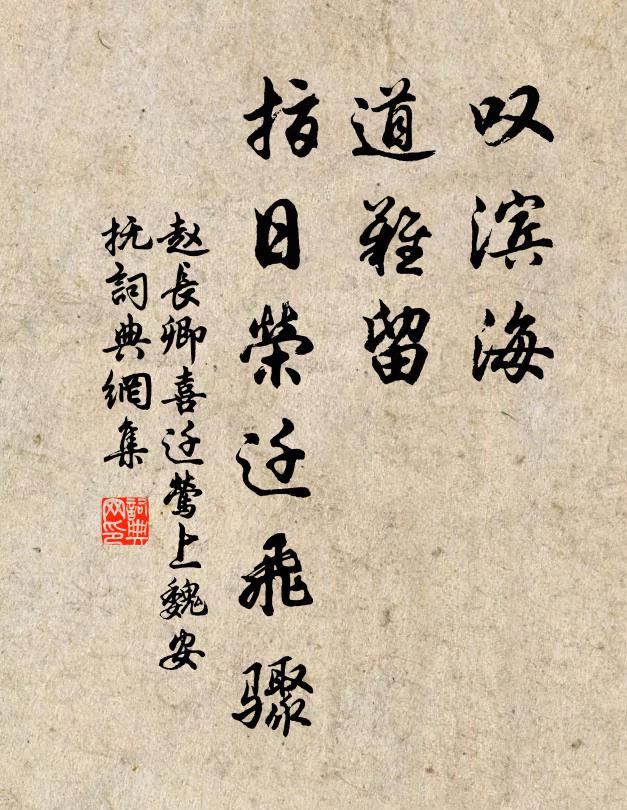 叹滨海
道难留
指日荣迁飞骤
赵长卿喜迁莺上魏安
抚词典网集
詞典
网印